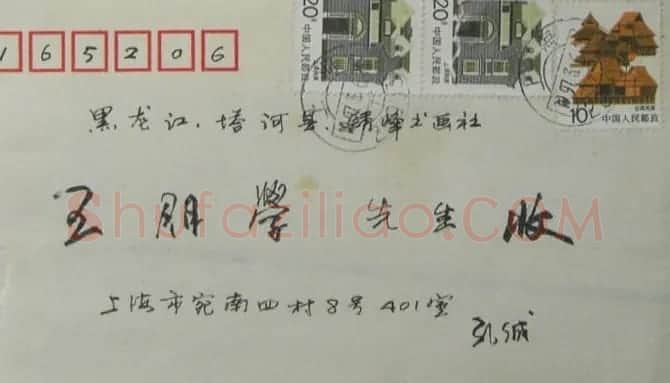 20分
中国人民邮政
20分
中国人民邮政
10分
中国人民邮政
165206
黑龙江.塔河县.靖峰书画社
王朋学 先生 收
上海市宛南四村8号401室
Shufaziliao.COM